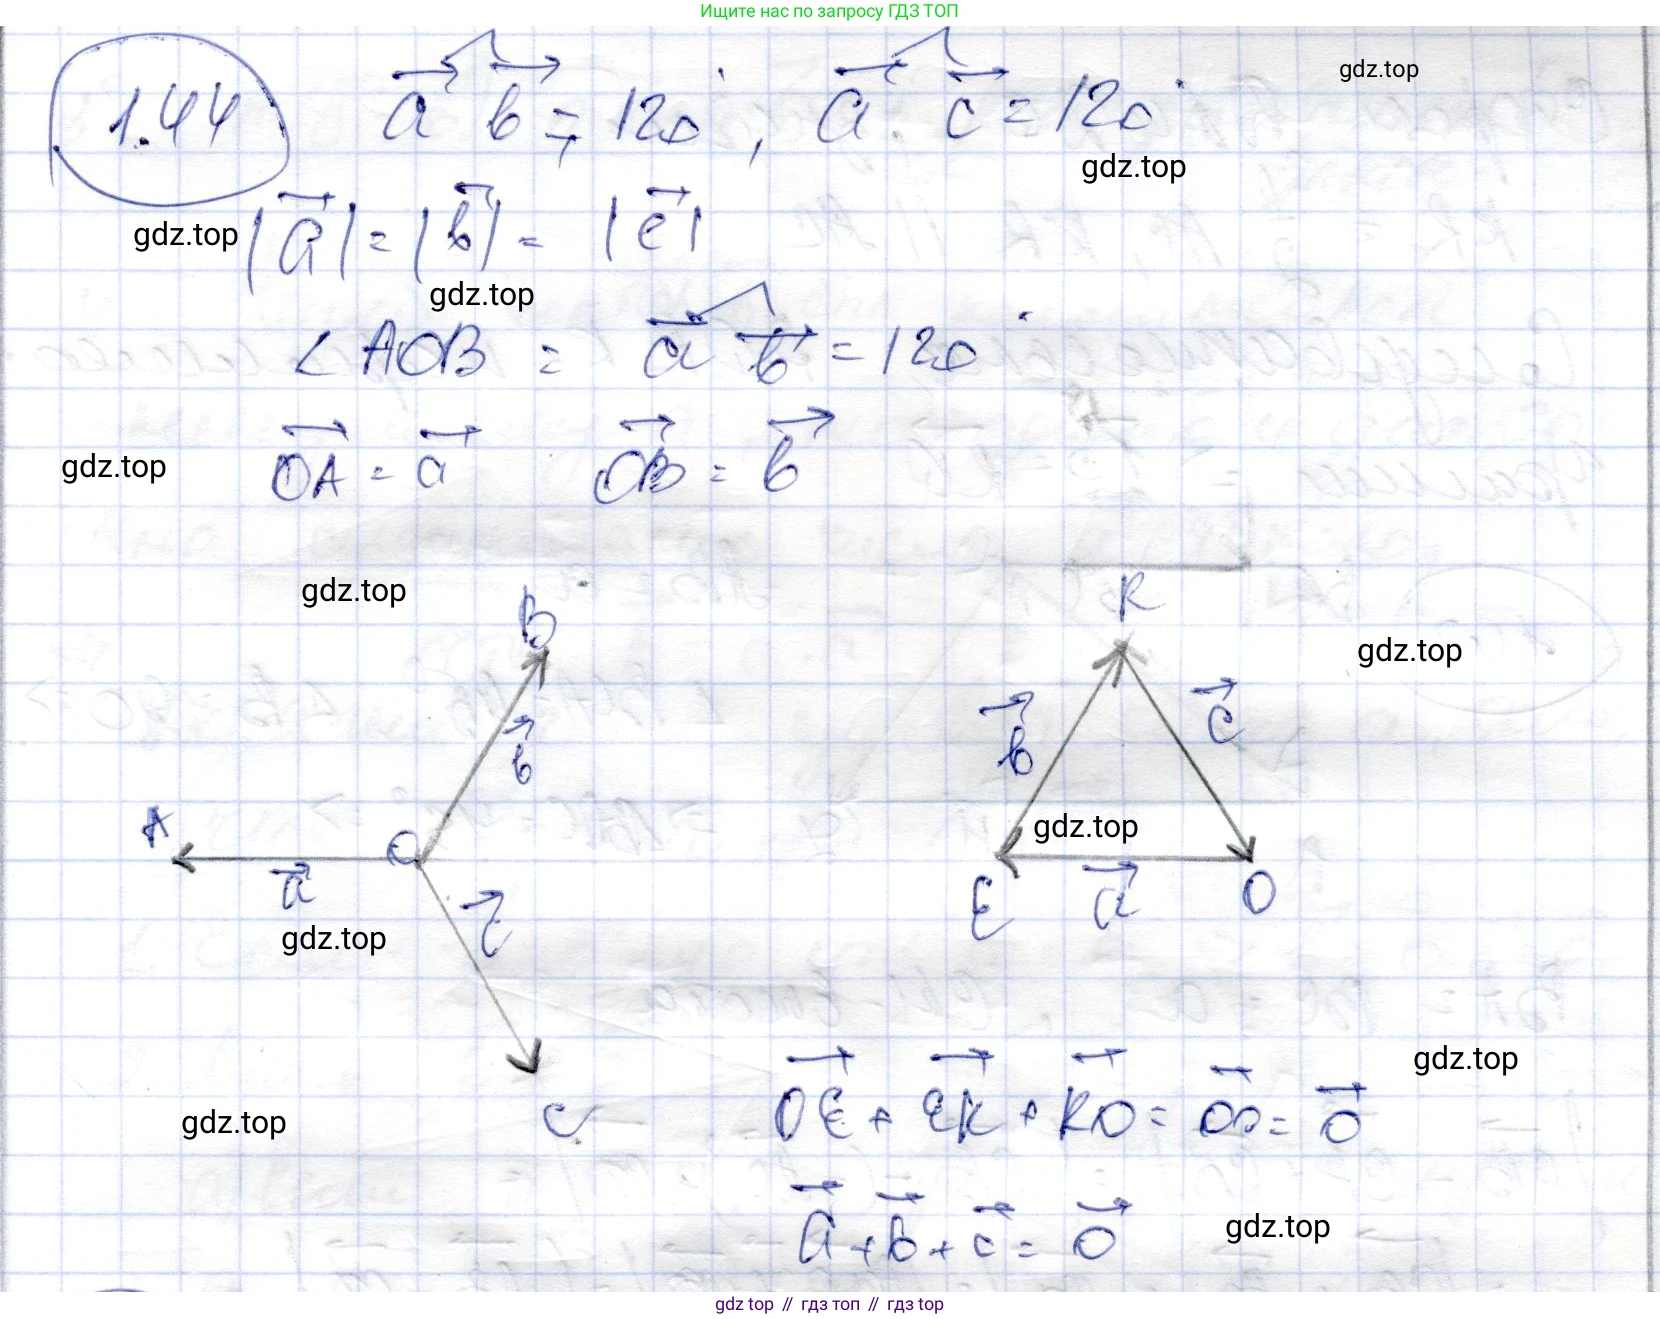 Ищите нас по запросу ГДЗ ТОП
1.44
a b = 120°, a c = 120°
gdz.top
gdz.top
|a| = |b| = |c|
gdz.top
gdz.top
∠AOB = a b = 120°
OA = a OB = b
gdz.top
gdz.top
B
K
gdz.top
b
b
c
A
O
gdz.top
a
E
a
O
c
gdz.top
C
gdz.top
gdz.top
OE + EK + KO = OO = 0
a + b + c = 0
gdz.top
gdz top // гдз топ // гдз top